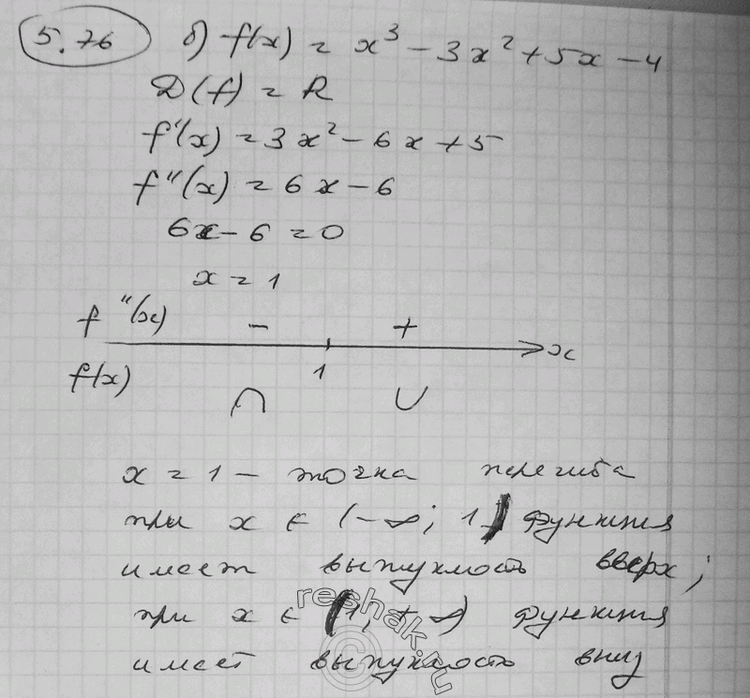 5.76 б) f(x) = x³ - 3x² + 5x - 4
D(f) = R
f'(x) = 3x² - 6x + 5
f''(x) = 6x - 6
6x - 6 = 0
x = 1
f''(x) - + x
f(x) 1
∩ ∪
x = 1 - точка перегиба
при x ∈ (-∞; 1) функция
имеет выпуклость вверх;
при x ∈ (1; +∞) функция
имеет выпуклость вниз
reshak.ru